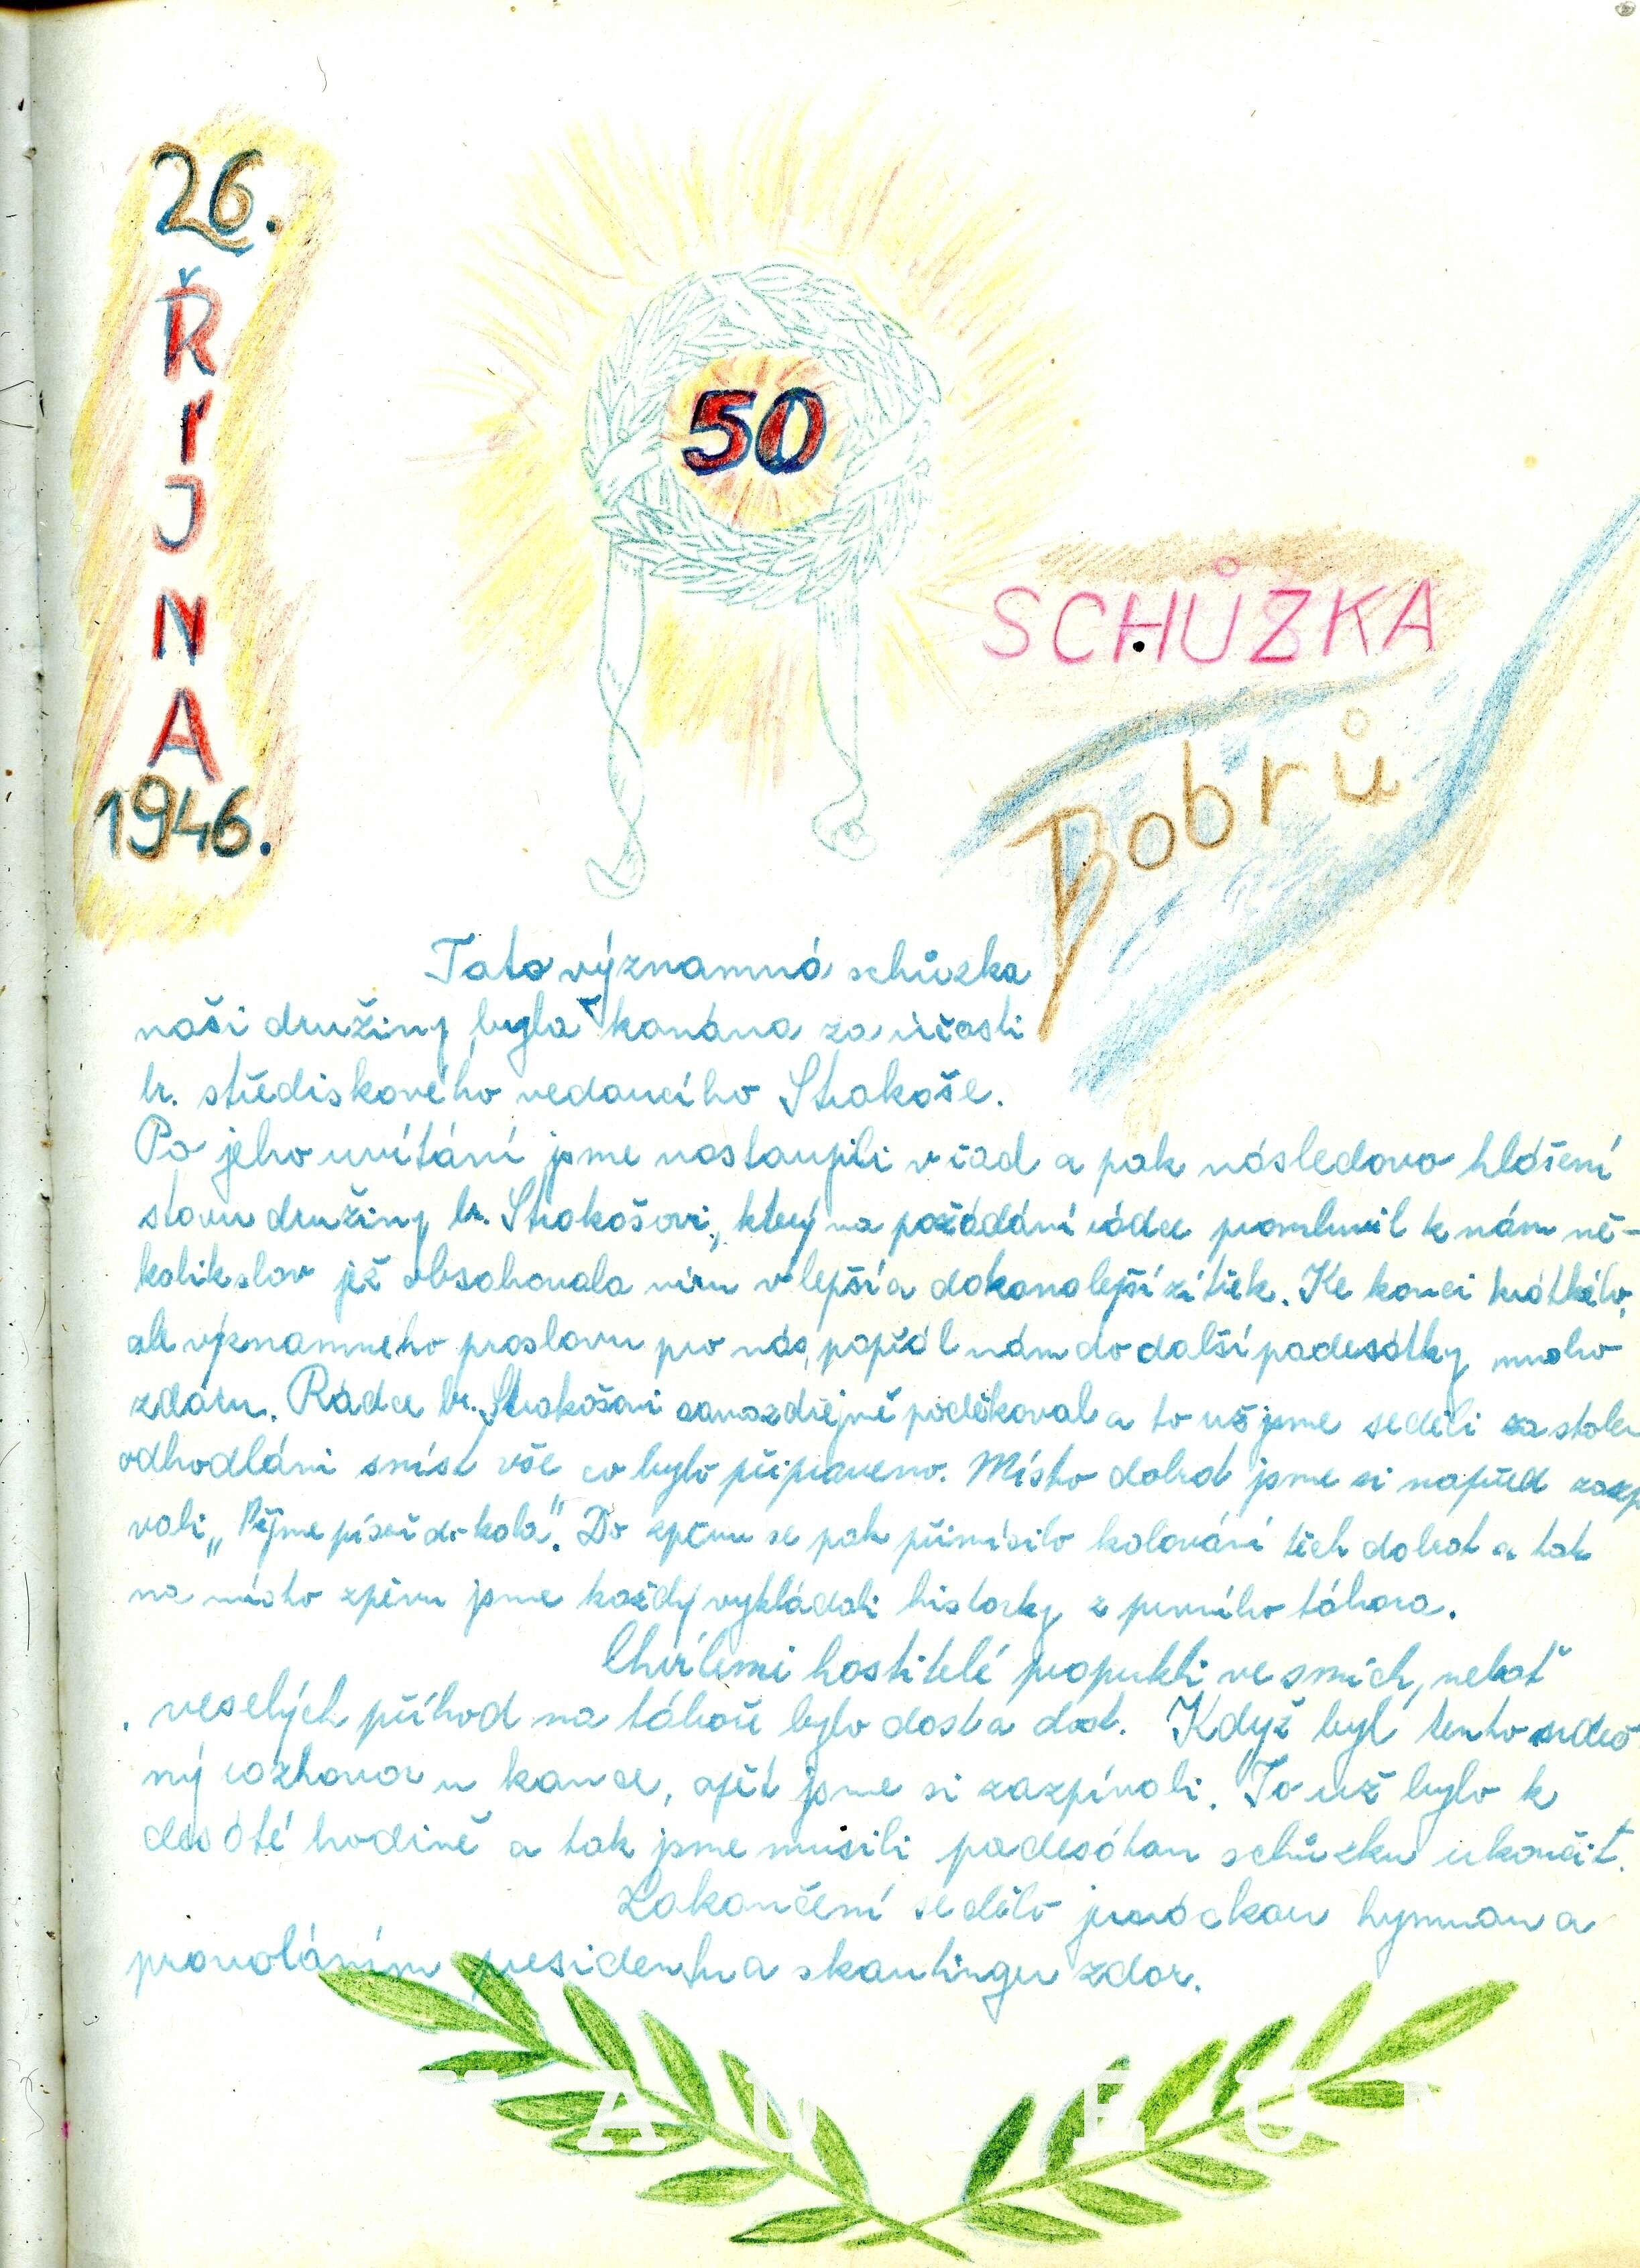 26.
ŘÍJNA
1946.
50
SCHŮZKA
Bobrů
Tato významná schůzka
naši družiny byla konána za účasti
br. střediskového vedoucího Strakoše.
Po jeho uvítání jsme nastoupili v řad a pak následovo hlášení
stavu družiny br. Strakošovi, který na požádání rádce promluvil k nám ně-
kolik slov jež obsahovala víru v lepší a dokonalejší zítřek. Ke konci krátkého,
ale význammeho proslovu pro nás, popřál nám do další padesátky mnoho
zdaru. Rádce br. Strakošovi poděkoval a to už jsme seděli za stolem
odhodláni sníst vše co bylo připraveno. Místo dobrot jsme si napřed zazp
vali „Pějme píseň do kola". Do zpěvu se pak přimísilo kolování těch dobrot a tak
na místo zpěvu jsme každý vykládali historky z prvního tábora.
Chvílemi hostitelé propukli ve smích, neboť
veselých příhod na táboře bylo dost a dost. Když byl tento srdeč
ný rozhovor u konce, opět jsme si zazpívali. To už bylo k
desáté hodině a tak jsme musili padesátou schůzku ukončit.
Zakončení se dělo junáckou hymnou a
provoláním presidentu a skautingu zdar.